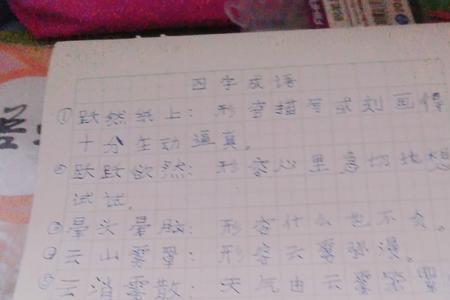 四字成语
①跃然纸上：形容描写或刻画得
十分生动逼真。
②跃跃欲然：形容心里急切地想
试试。
③晕头晕脑：形容什么也不会。
④云山雾罩：形容云雾弥漫。
⑤云消雾散：天气由云雾